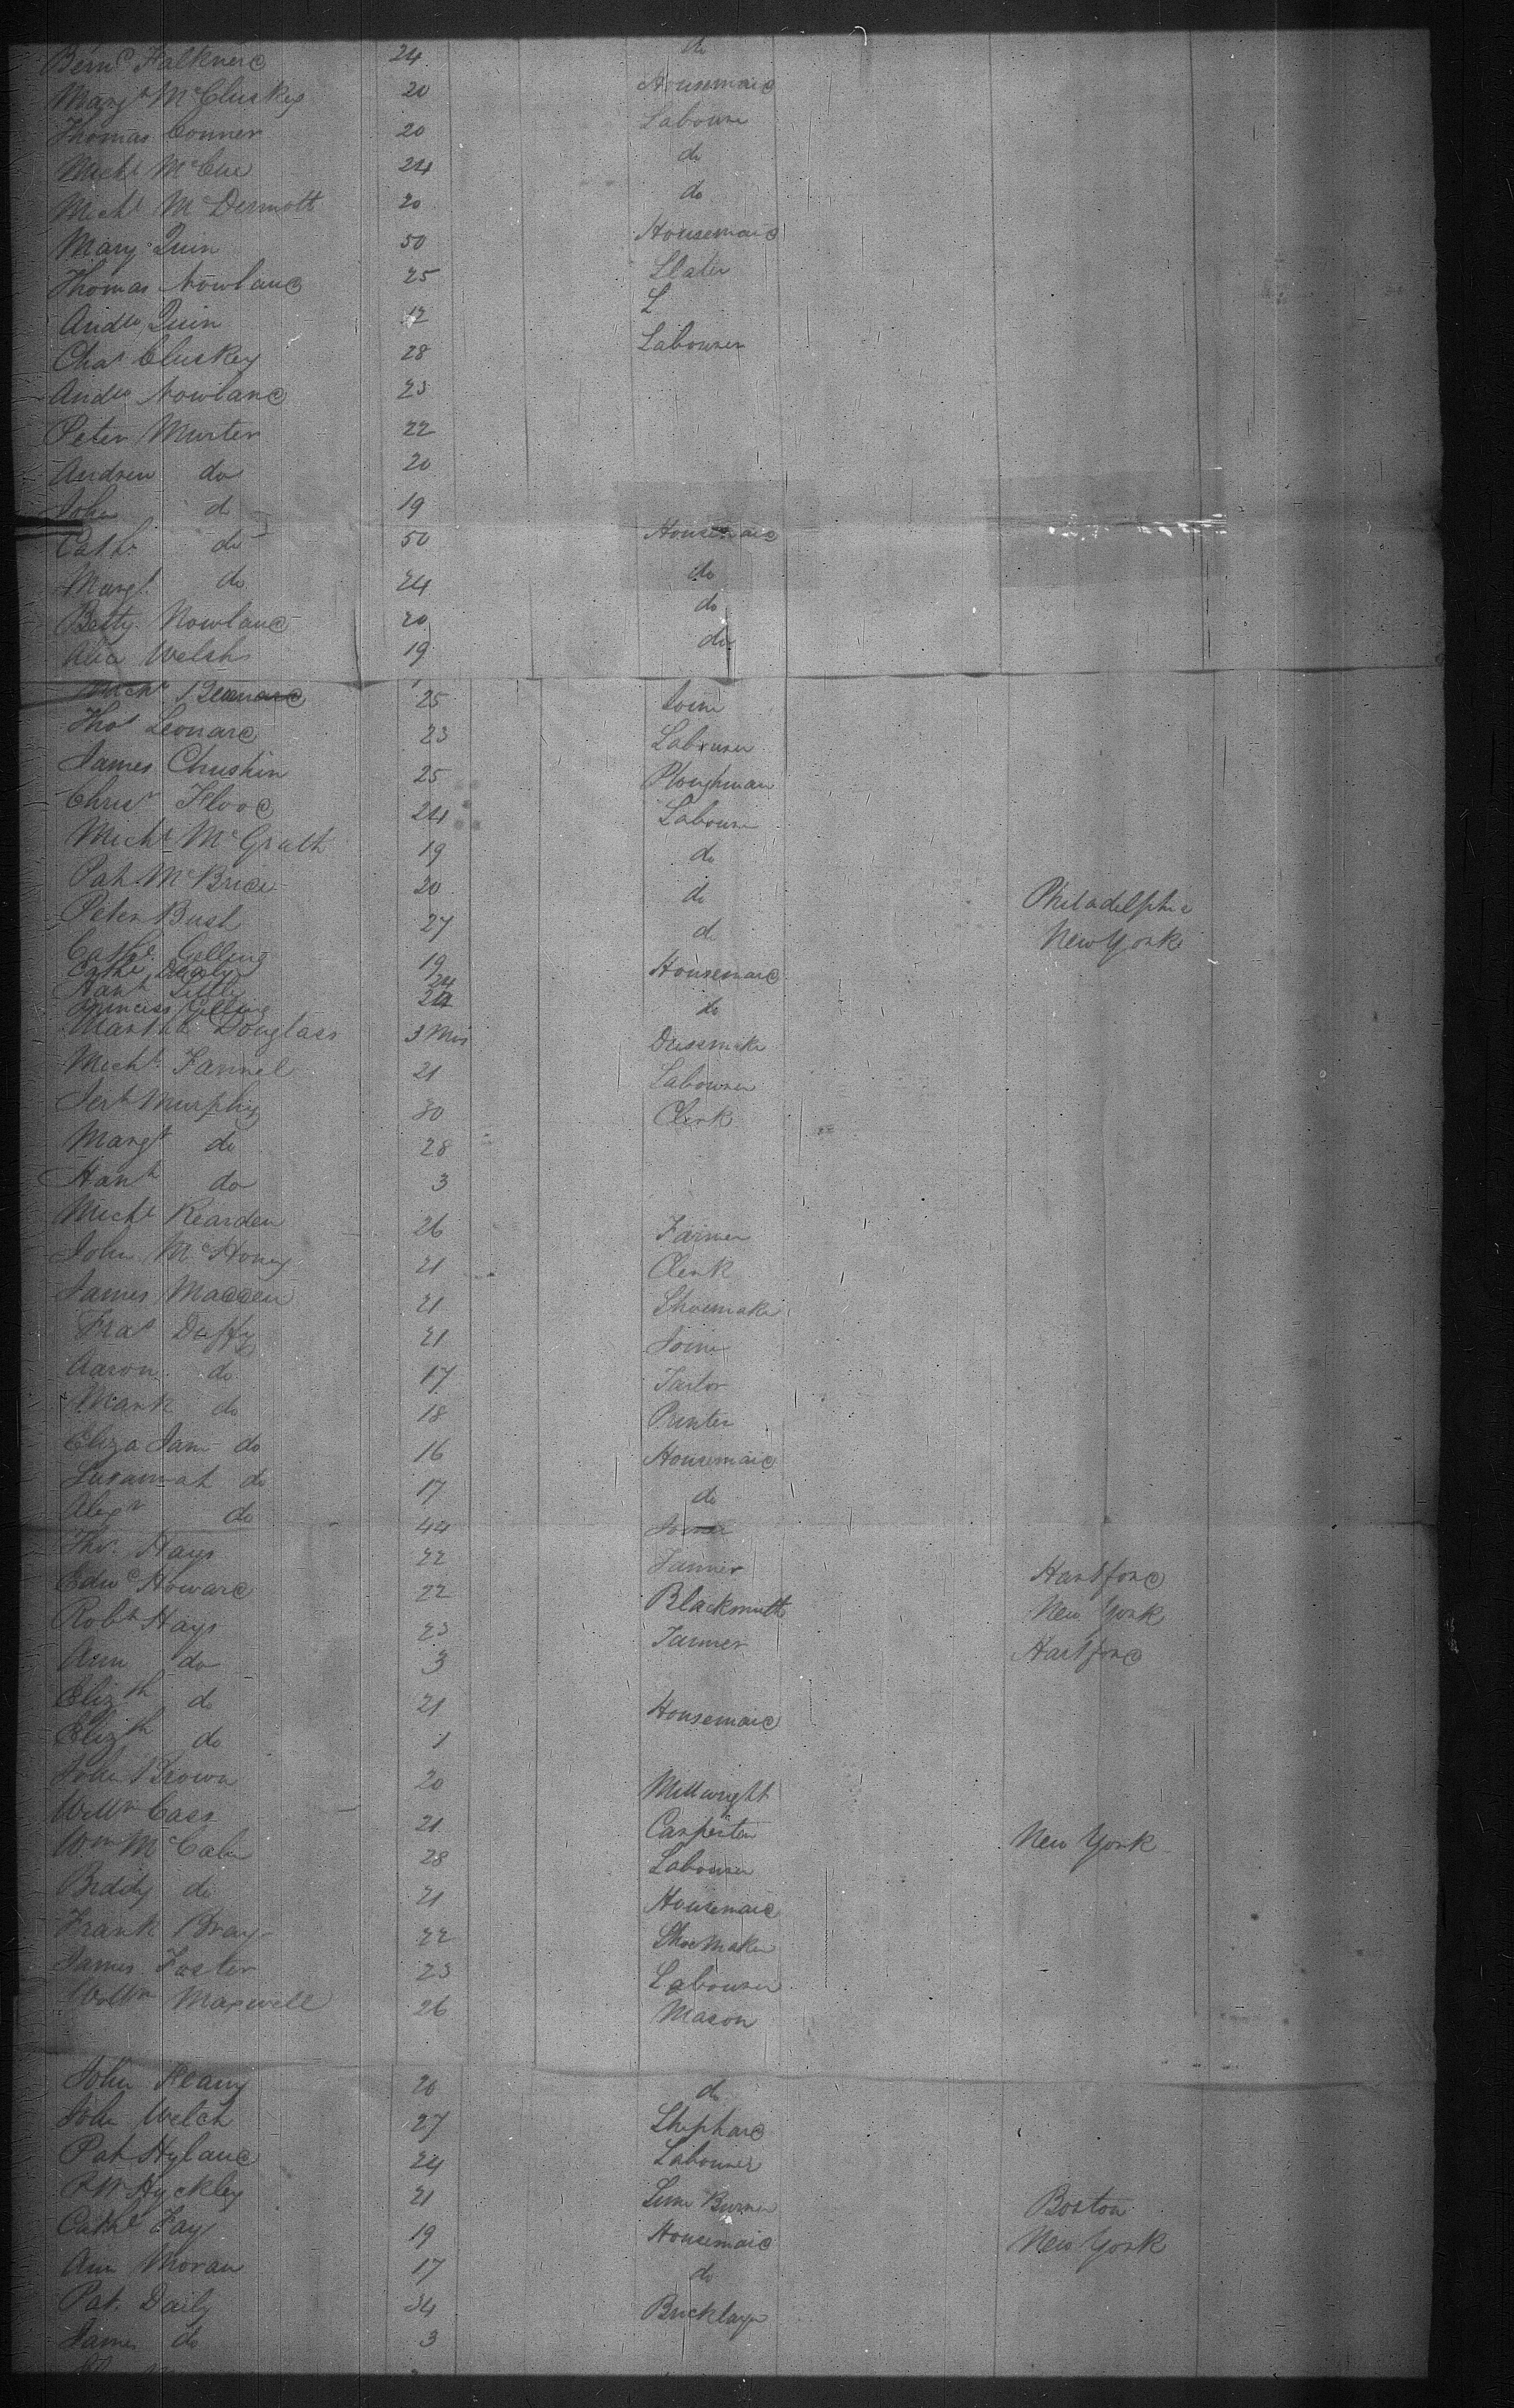 Bernd Falknerd 24 do
Margt McCluskey 20 Housemaid
Thomas Conner 20 Labourer
Michl McCue 24 do
Michl McDermott 20 do
Mary Quin 50 Housemaid
Thomas Nowland 25 Slater
Andw Quin 12
Chas Cluskey 28 Labourer
Andw Nowland 23
Peter Murter 22
Andrew do 20
John do 19
Cath do 50 Housemaid
Margt do 24 do
Betty Nowland 20 do
Alice Welsh 19 do
Michl Leonard 25 Joiner
Thos Leonard 23 Labourer
James Chushin 25 Ploughman
Chrisr Flood 24 Labourer
Michl McGrath 19 do
Pat McBride 20 do Philadelphia
Peter Bush 27 do New York
Cathe Gelling 19 Housemaid
Cathe 24
Hanh Little 20 do
Princess Gelling
Martha Douglass 3 Mos Dressmaker
Michl Fannel 21 Labourer
Jerh Murphy 30 Clerk
Margt do 28
Hanh do 3
Michl Rearden 26 Farmer
John McHoney 21 Clerk
James Madden 21 Shoemaker
Fras Duffy 21 Joiner
Aaron do 17 Tailor
Mark do 18 Printer
Eliza Jane do 16 Housemaid
Susannah do 17 do
Alexr do 44
Thos Hays 22 Farmer Hartford
Edwd Howard 22 Blacksmith New York
Robt Hays 23 Farmer Hartford
Ann do 3
Elizth do 21 Housemaid
Elizth do 1
John Brown 20 Millwright
Willm Cass 21 Carpenter New York
Wm McCabe 28 Labourer
Biddy do 21 Housemaid
Frank Bray 22 Shoe Maker
James Foster 23 Labourer
Willm Maxwell 26 Mason
John Keary 20 do
John Welch 27 Shephard
Pat Hyland 24 Labourer
Pat Hyckley 21 Lime Burner Boston
Cathe Fay 19 Housemaid New York
Ann Moran 17 do
Pat. Daily 34 Bricklayer
James do 3